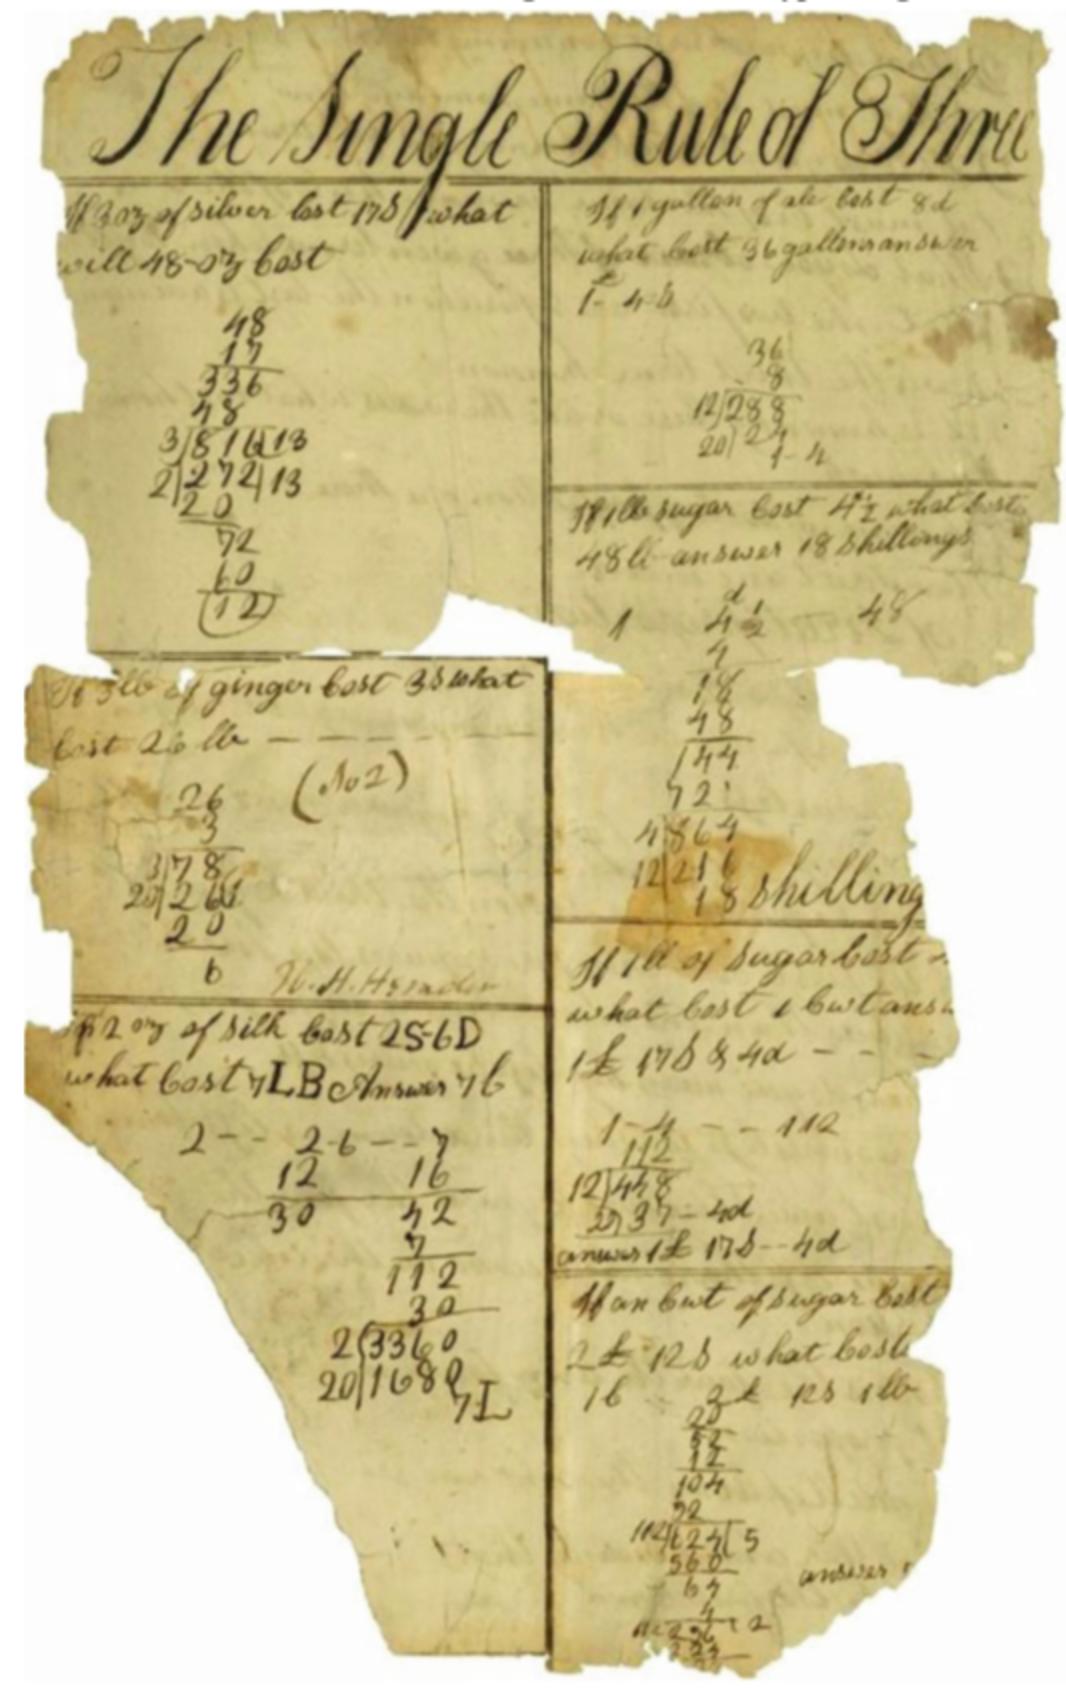 The Single Rule of Three
If 3 oz of silver Cost 17S what
will 48 oz Cost
48
17
336
48
3/816/13
2/272/13
20
72
60
12
If 3lb of ginger Cost 3s what
Cost 26 lb - - - - - - - -
(No 2)
26
3
3/78
20/26
20
6
2 oz of silk Cost 2S-6D
what Cost 7LB Answer 7 L
2-- 2-6--7
12 16
30 42
7
112
30
2/3360
20/1680
7L
If 1 gallon of ale Cost 8d
what Cost 36 gallons answer
£
1- 4-S
36
8
12/288
20/24
1- 4
If 1lb sugar Cost 4½ what Cost
48 lb answer 18 Shillings
d
1 4½ 48
4
18
48
144
72
4/864
12/216
18 shilling
If 1 lb of Sugar Cost
what Cost 1 Cwt
1£ 17S & 4d - - -
1-4 - - 112
112
12/448
20/37-4d
answer 1£ 17S--4d
If an Cwt of Sugar Cost
2£ 12S what Cost
16 2£ 12S 1 lb
20
52
12
104
52
112/624/5
560
64
4
answer